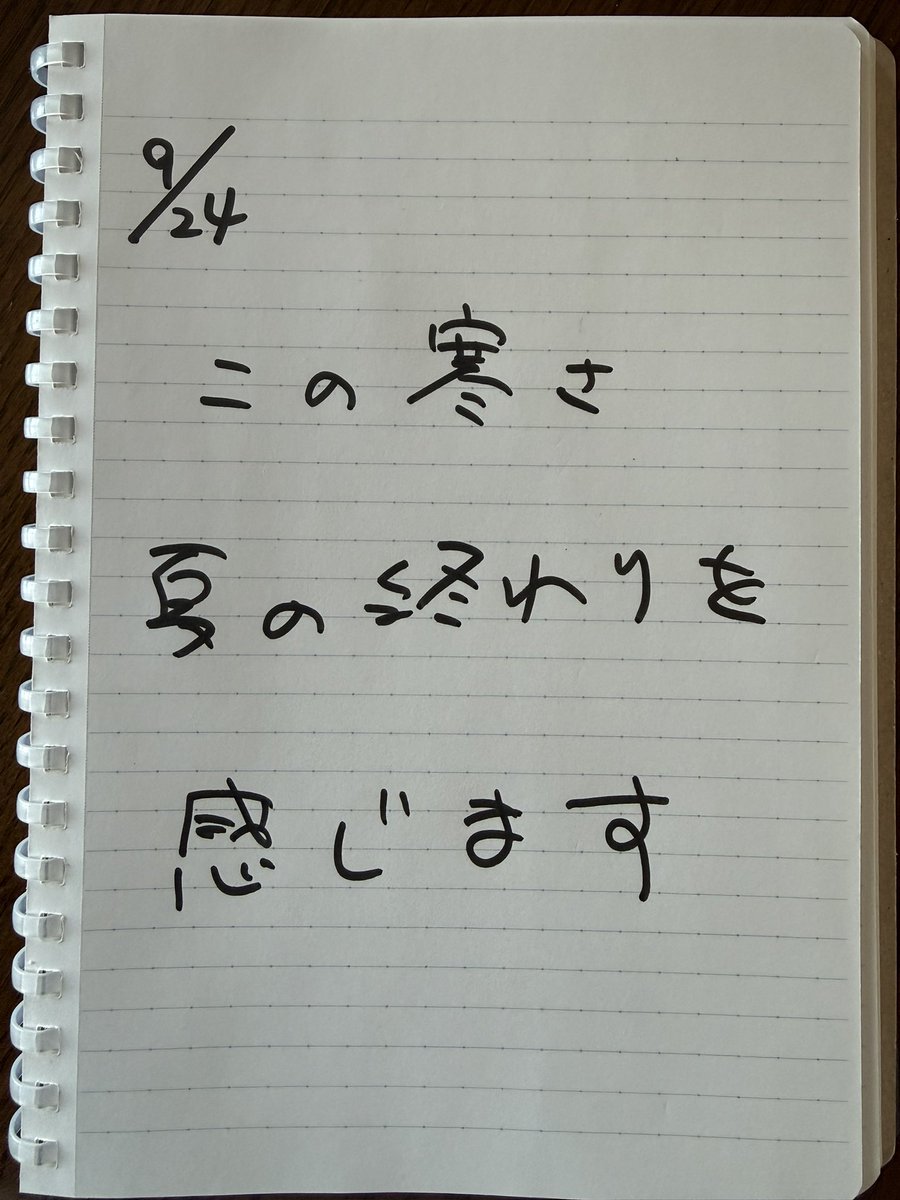 9/24
この寒さ
夏の終わりを
感じます